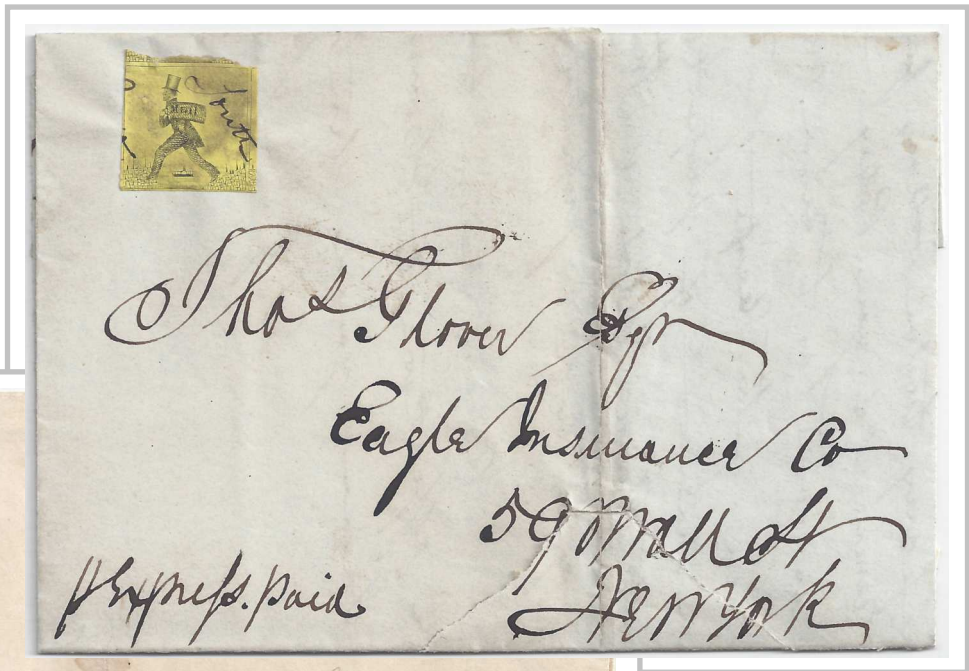 South
Thos Glover Esqr
Eagle Insurance Co
59 Wall St
New York
p Express. paid